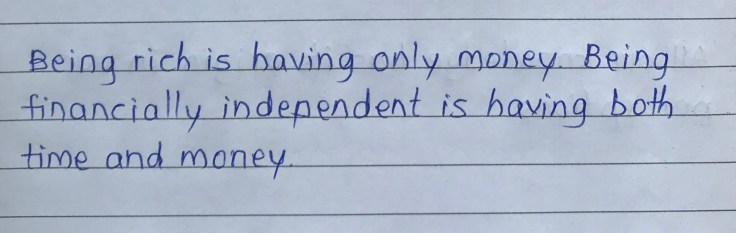 Being rich is having only money. Being
financially independent is having both
time and money.